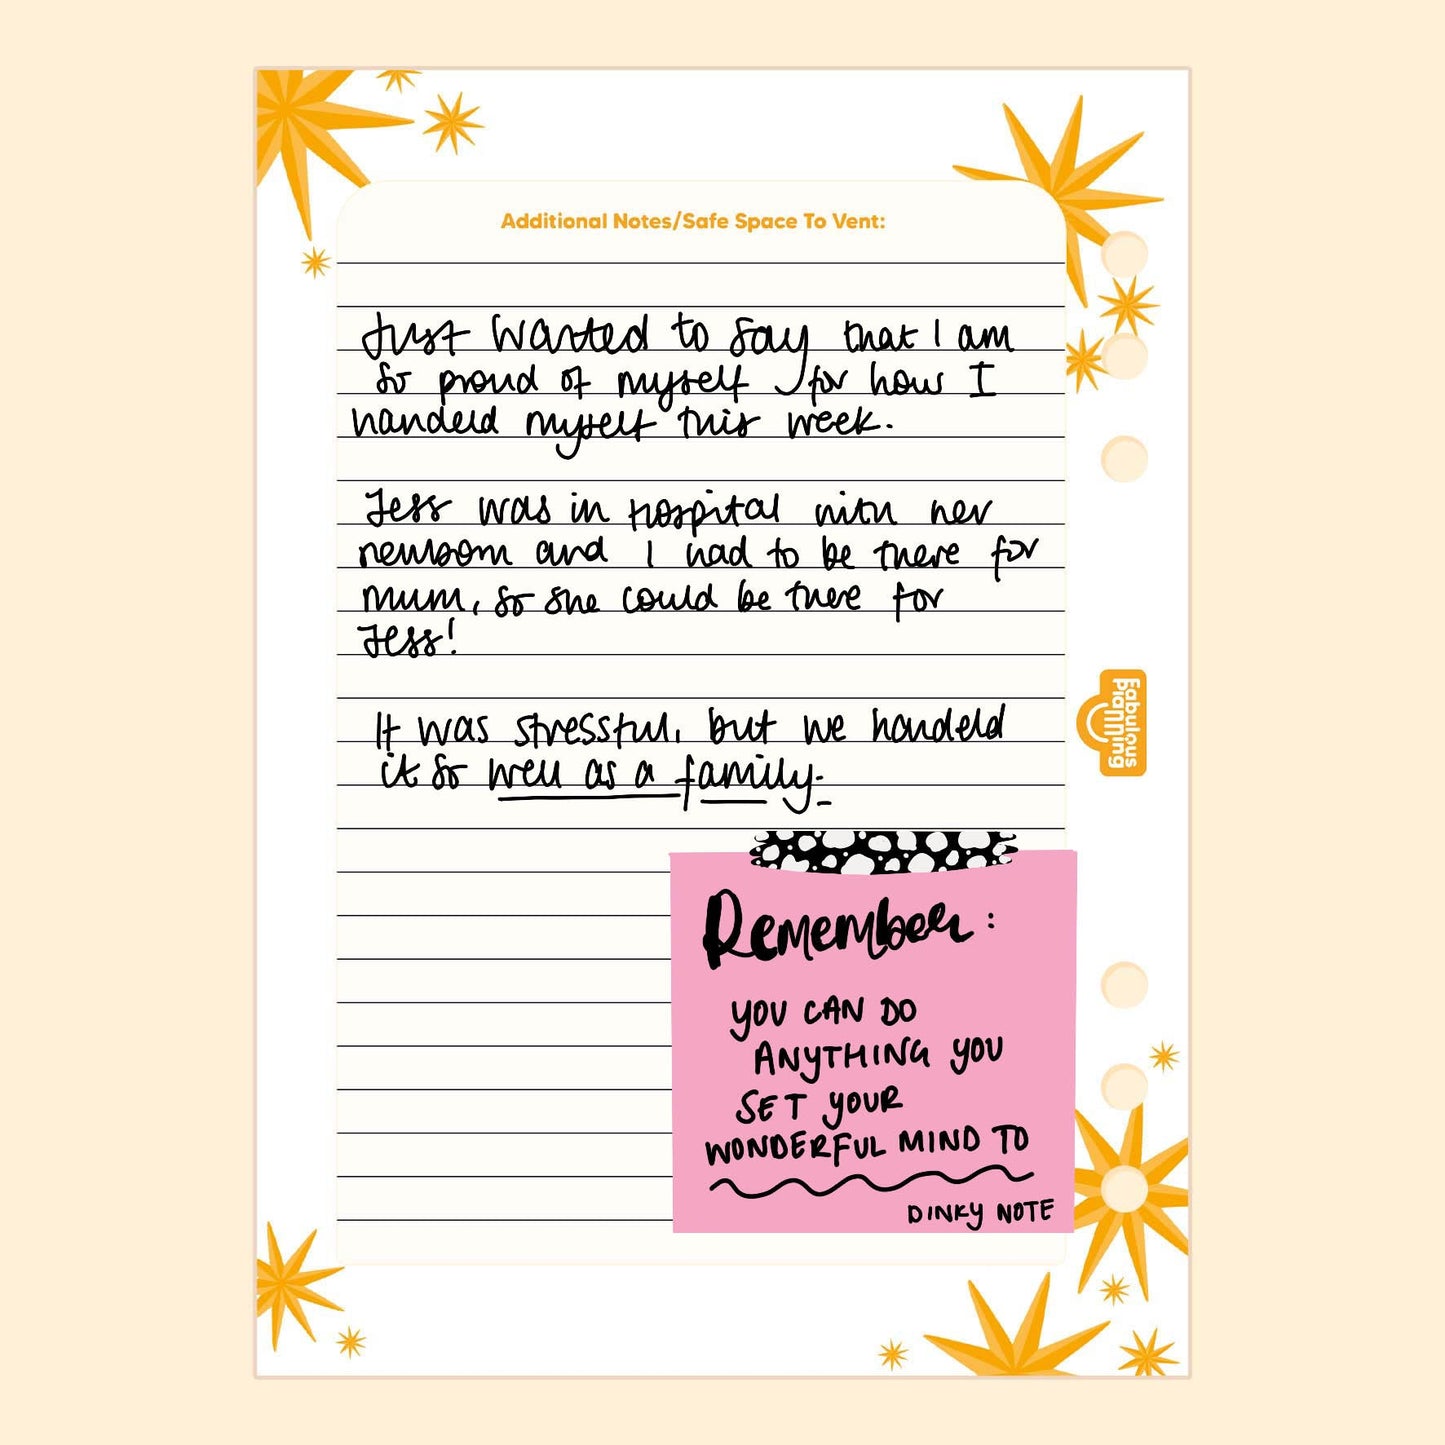 Additional Notes/Safe Space To Vent:
Just wanted to say that I am
so proud of myself for how I
handeld myself this week.
Jess was in hospital with her
newborn and I had to be there for
mum, so she could be there for
Jess!
It was stressful, but we handeld
it so well as a family.
Fabulous
Planning
Remember:
YOU CAN DO
ANYTHING YOU
SET YOUR
WONDERFUL MIND TO
DINKY NOTE